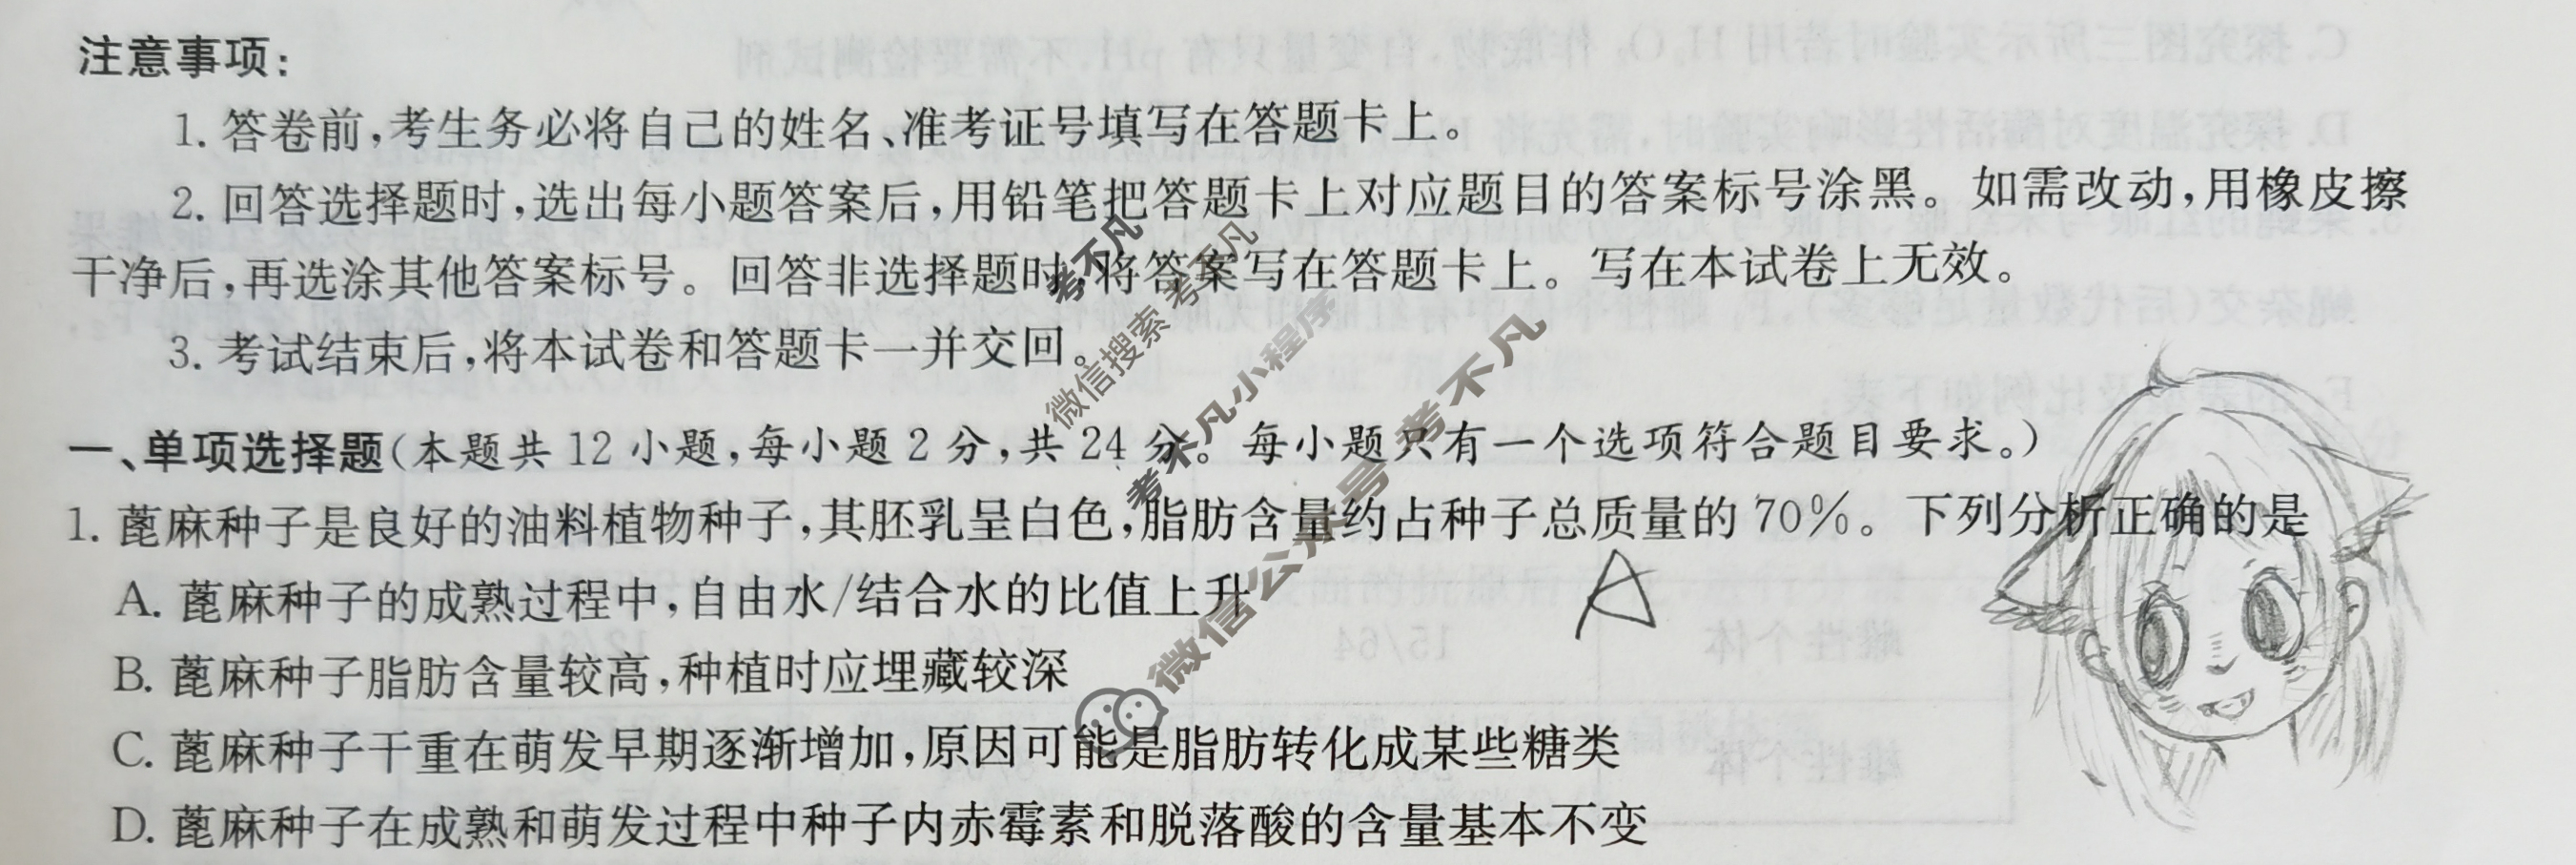 注意事项:
1. 答卷前,考生务必将自己的姓名、准考证号填写在答题卡上。
2. 回答选择题时,选出每小题答案后,用铅笔把答题卡上对应题目的答案标号涂黑。如需改动,用橡皮擦
干净后,再选涂其他答案标号。回答非选择题时,将答案写在答题卡上。写在本试卷上无效。
3. 考试结束后,将本试卷和答题卡一并交回。
考不凡
微信搜索 考不凡
考不凡小程序
微信公众号 考不凡
一、单项选择题(本题共 12 小题,每小题 2 分,共 24 分。每小题只有一个选项符合题目要求。)
1. 蓖麻种子是良好的油料植物种子,其胚乳呈白色,脂肪含量约占种子总质量的 70%。下列分析正确的是
A
A. 蓖麻种子的成熟过程中,自由水/结合水的比值上升
B. 蓖麻种子脂肪含量较高,种植时应埋藏较深
C. 蓖麻种子干重在萌发早期逐渐增加,原因可能是脂肪转化成某些糖类
D. 蓖麻种子在成熟和萌发过程中种子内赤霉素和脱落酸的含量基本不变